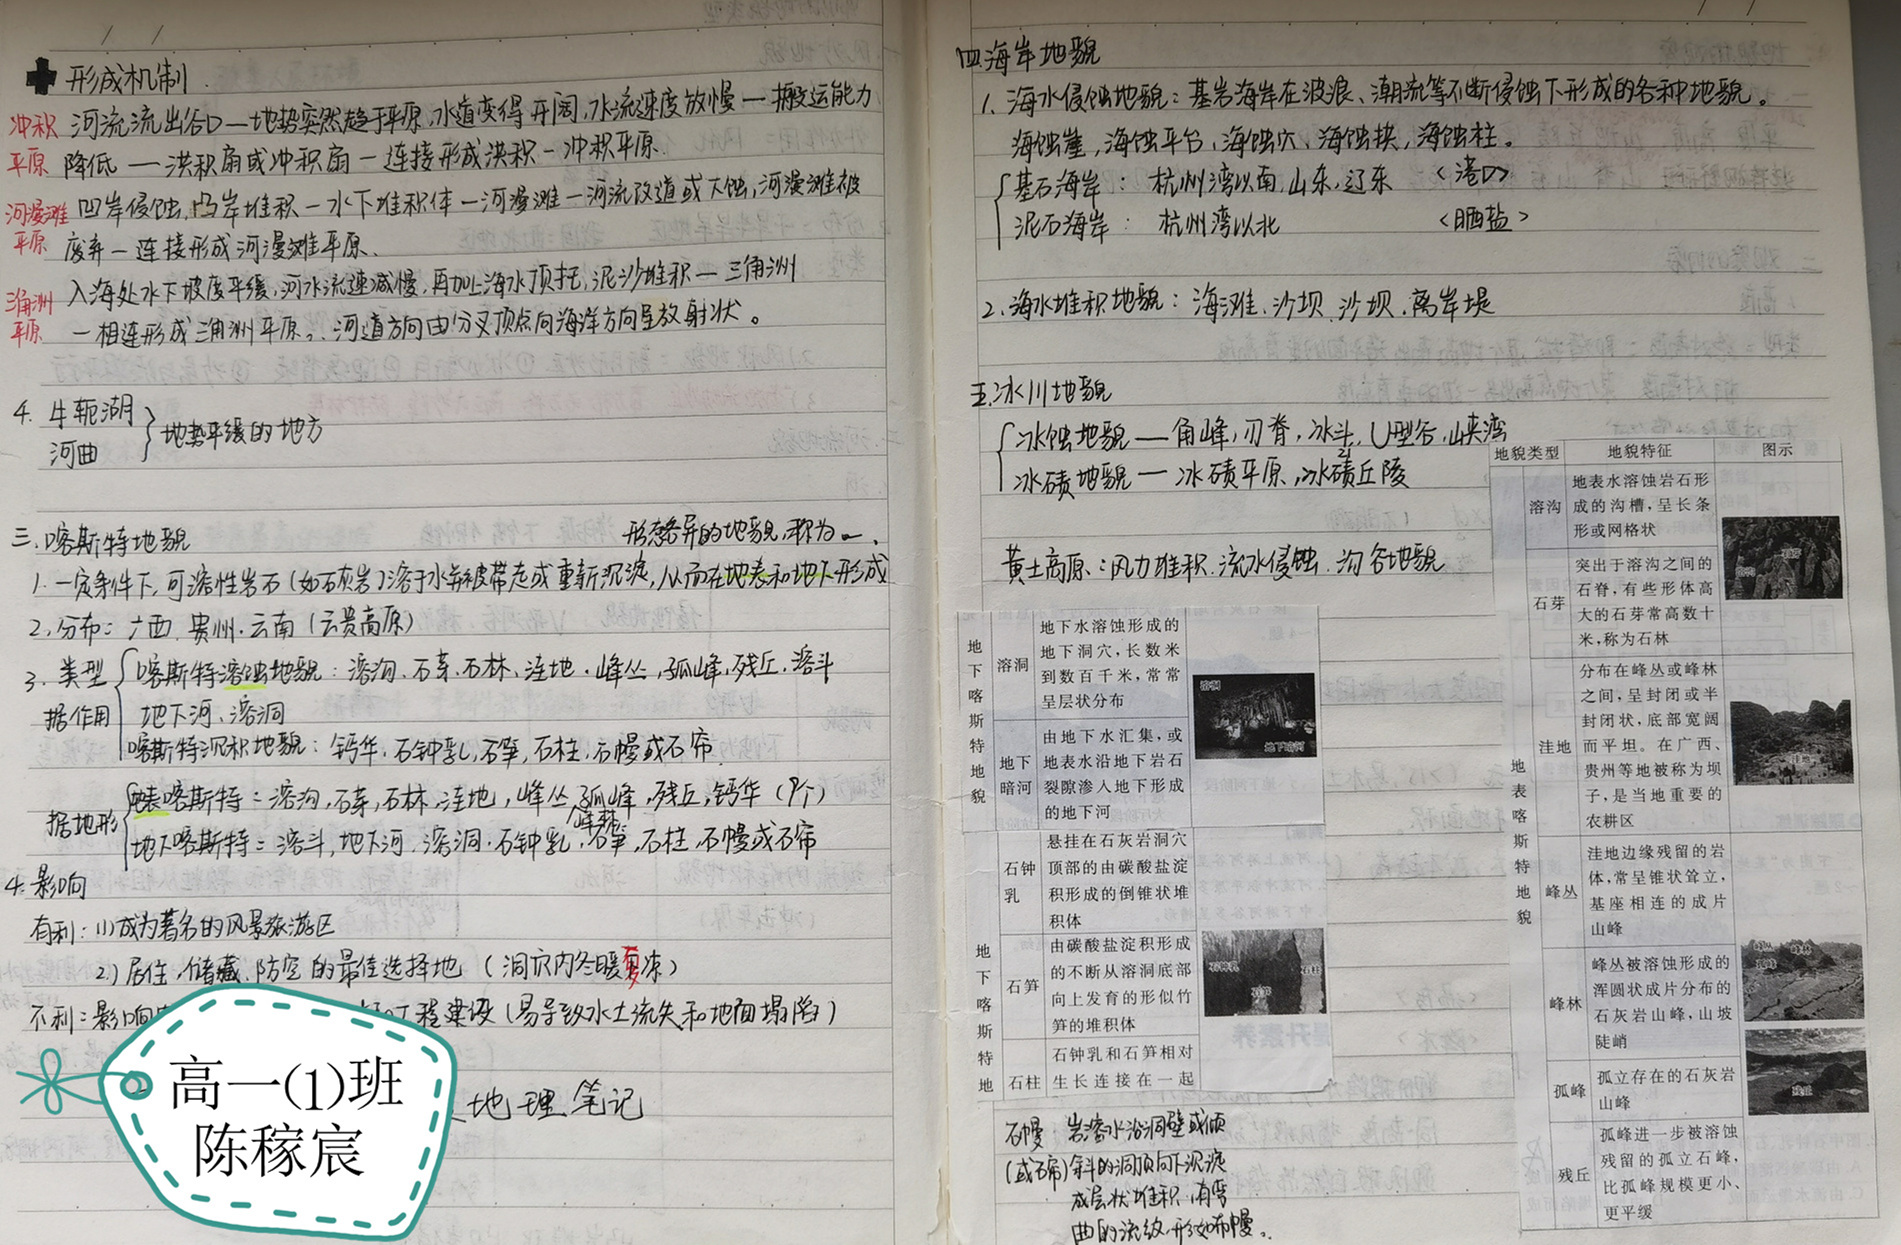 形成机制
冲积平原
河流流出谷口—地势突然趋于平原,水道变得开阔,水流速度放慢—搬运能力
降低—洪积扇或冲积扇—连接形成洪积—冲积平原.
河漫滩平原
凹岸侵蚀,凸岸堆积—水下堆积体—河漫滩—河流改道或下蚀,河漫滩被
废弃—连接形成河漫滩平原、
三角洲平原
入海处水下坡度平缓,河水流速减慢,再加上海水顶托,泥沙堆积—三角洲
—相连形成三角洲平原。∴河道方向由分叉顶点向海洋方向呈放射状。
4. 牛轭湖
河曲
地势平缓的地方
三.喀斯特地貌
形态各异的地貌,称为~.
1.一定条件下,可溶性岩石(如石灰岩)溶于水并被带走或重新沉淀,从而在地表和地下形成
2.分布:广西.贵州.云南(云贵高原)
3. 类型
据作用
喀斯特溶蚀地貌:溶沟、石芽、石林、洼地、峰丛,孤峰,残丘,溶斗
地下河、溶洞
喀斯特沉积地貌:钙华,石钟乳,石笋,石柱,石幔或石帘
据地形
地表喀斯特:溶沟,石芽,石林,洼地,峰丛,孤峰,残丘,钙华(9个)
峰林
地下喀斯特:溶斗,地下河,溶洞,石钟乳,石笋,石柱,石幔或石帘
4.影响
有利:(1)成为著名的风景旅游区
2)居住,储藏、防空的最佳选择地(洞穴内冬暖夏凉)
不利:影响
工程建设(易导致水土流失和地面塌陷)
地理笔记
高一(1)班
陈稼宸
四.海岸地貌
1.海水侵蚀地貌:基岩海岸在波浪、潮流等不断侵蚀下形成的各种地貌。
海蚀崖,海蚀平台,海蚀穴、海蚀拱,海蚀柱。
基石海岸:杭州湾以南,山东,辽东 <港口>
泥石海岸:杭州湾以北 <晒盐>
2.海水堆积地貌:海滩、沙坝.沙坝.离岸堤
五.冰川地貌
冰蚀地貌—角峰,刃脊,冰斗,U型谷,峡湾
冰碛地貌—冰碛平原,冰碛丘陵
黄土高原:风力堆积.流水侵蚀.沟谷地貌
地下喀斯特地貌
溶洞
地下水溶蚀形成的
地下洞穴,长数米
到数百千米,常常
呈层状分布
溶洞
地下暗河
地下
暗河
由地下水汇集,或
地表水沿地下岩石
裂隙渗入地下形成
的地下河
地下喀斯特地
石钟
乳
悬挂在石灰岩洞穴
顶部的由碳酸盐淀
积形成的倒锥状堆
积体
石笋
由碳酸盐淀积形成
的不断从溶洞底部
向上发育的形似竹
笋的堆积体
石钟乳
石柱
石笋
石柱
石钟乳和石笋相对
生长连接在一起
石幔
(或石帘)
岩溶水沿洞壁或倾
斜的洞顶向下沉淀
成层状堆积,有弯
曲的流纹,形如布幔。
地貌类型
地貌特征
图示
地表喀斯特地貌
溶沟
地表水溶蚀岩石形
成的沟槽,呈长条
形或网格状
石芽
突出于溶沟之间的
石脊,有些形体高
大的石芽常高数十
米,称为石林
洼地
分布在峰丛或峰林
之间,呈封闭或半
封闭状,底部宽阔
而平坦。在广西、
贵州等地被称为坝
子,是当地重要的
农耕区
洼地
峰丛
洼地边缘残留的岩
体,常呈锥状耸立,
基座相连的成片
山峰
峰林
峰丛被溶蚀形成的
浑圆状成片分布的
石灰岩山峰,山坡
陡峭
孤峰
孤立存在的石灰岩
山峰
残丘
残丘
孤峰进一步被溶蚀
残留的孤立石峰,
比孤峰规模更小、
更平缓